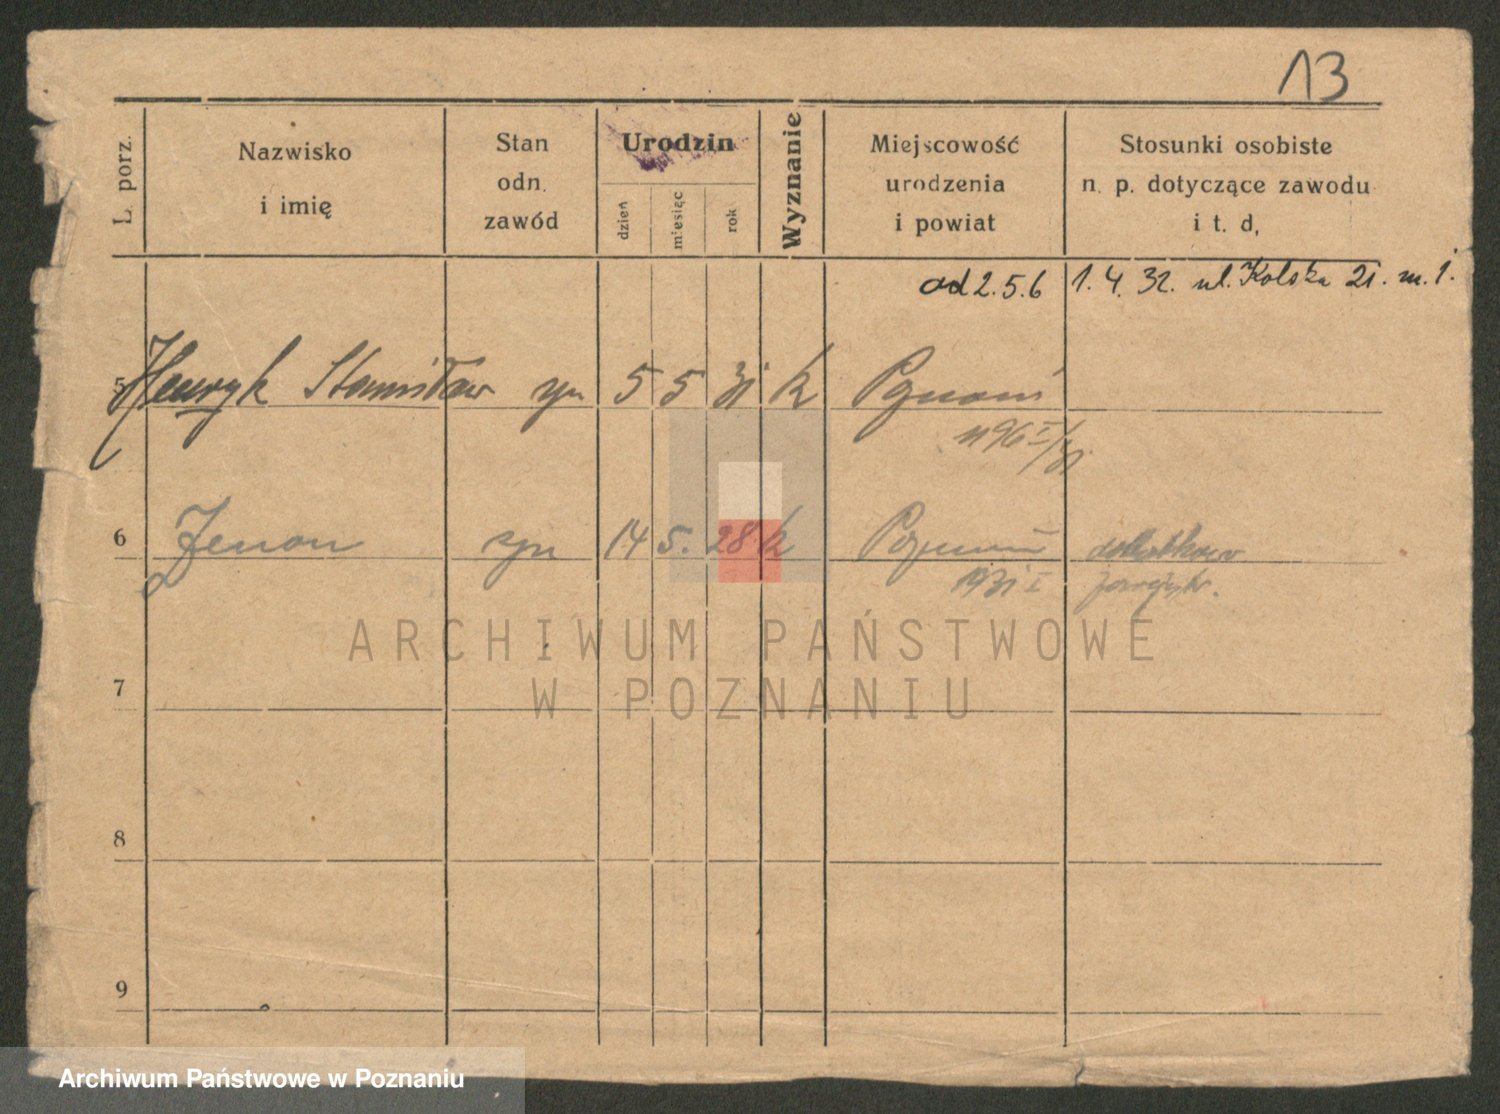 13
L. porz.
Nazwisko
i imię
Stan
odn.
zawód
Urodzin
dzień
miesiąc
rok
Wyznanie
Miejscowość
urodzenia
i powiat
Stosunki osobiste
n. p. dotyczące zawodu
i t. d,
od 2.5.6 1.4.32. ul. Kolska 21. m. 1.
5 Henryk Stanisław syn 5 5 31 k Poznań
1196 I/31
6 Zenon syn 14 5. 28 k Poznań dodatkowo
1931 I
ARCHIWUM PAŃSTWOWE
W POZNANIU
7
8
9
Archiwum Państwowe w Poznaniu